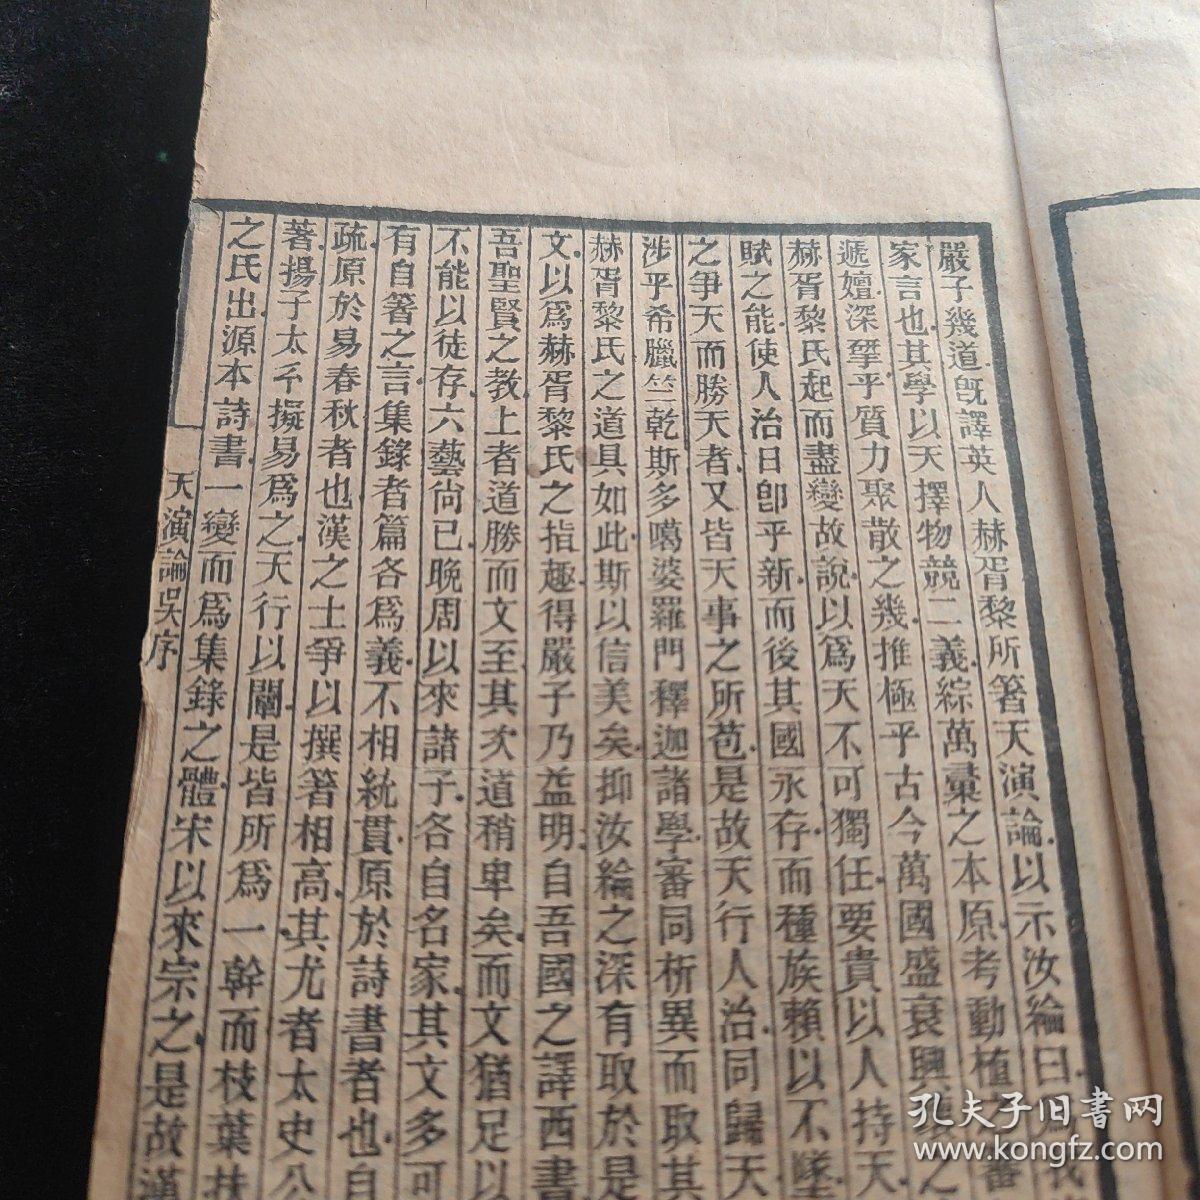 嚴子幾道既譯英人赫胥黎所箸天演論以示汝綸曰我
家言也其學以天擇物競二義綜萬彙之本原考動植蕃
遞嬗深揅乎質力聚散之幾推極乎古今萬國盛衰興壞之
赫胥黎氏起而盡變故說以爲天不可獨任要貴以人持天
賦之能使人治日卽乎新而後其國永存而種族賴以不墜
之爭天而勝天者又皆天事之所苞是故天行人治同歸天
涉乎希臘竺乾斯多噶婆羅門釋迦諸學審同析異而取其
赫胥黎氏之道具如此斯以信美矣抑汝綸之深有取於是
文以爲赫胥黎氏之指趣得嚴子乃益明自吾國之譯西書
吾聖賢之教上者道勝而文至其次道稍卑矣而文猶足以
不能以徒存六藝尙已晚周以來諸子各自名家其文多可
有自箸之言集錄者篇各爲義不相統貫原於詩書者也自
疏原於易春秋者也漢之士爭以撰著相高其尤者太史公
著揚子太玄擬易爲之天行以闡是皆所爲一幹而枝葉扶
之氏出源本詩書一變而爲集錄之體宋以來宗之是故漢
天演論吳序
孔夫子旧書网
www.kongfz.com